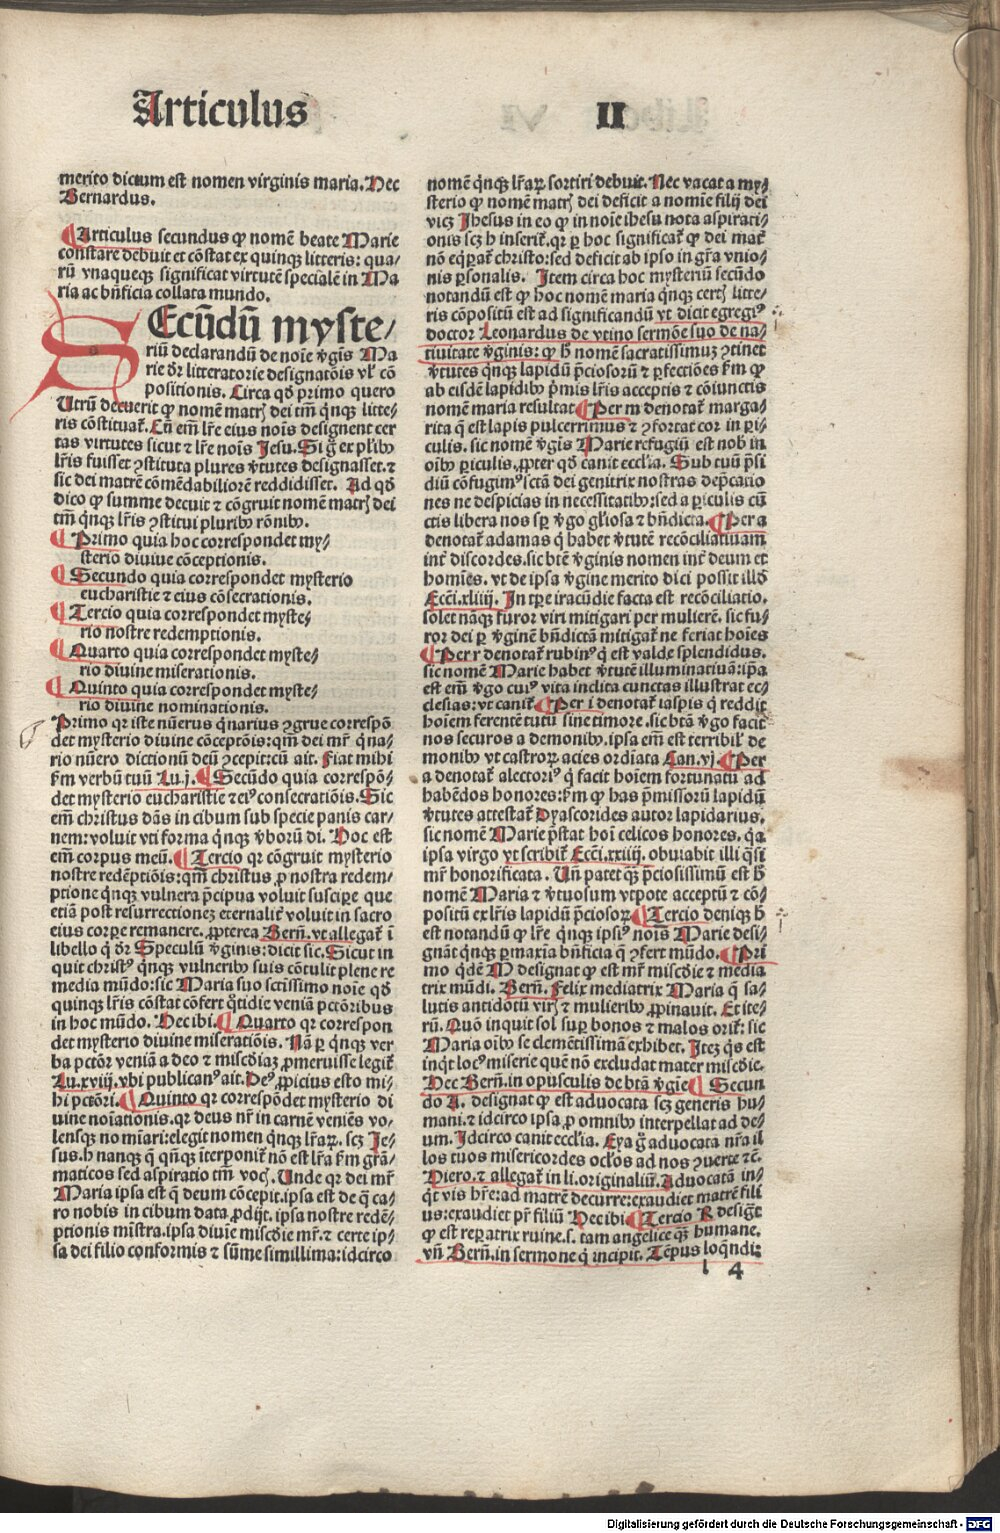 Articulus II
merito dictum est nomen virginis maria. Hec
Bernardus.
¶Articulus secundus ꝙ nomē beate Marie
constare debuit et cōstat ex quinqꝫ litteris: qua/
rū vnaqueqꝫ significat virtutē specialē in Ma
ria ac bn̄ficia collata mundo.
SEcūdū myste/
riū declarandū de noīe v̄gīs Ma
rie d̄r litteratorie designatōis vl̓ cō
positionis. Circa qd̄ primo quero
Utrū decuerit ꝙ nomē matrꝭ dei tm̄ qͥnqꝫ litte/
ris cōstituat᷑. Cū em̄ lr̄e eius noīs designent cer
tas virtutes sicut ⁊ lr̄e noīs Jesu. Si g̊ ex plībꝰ
lr̄is fuisset ꝯstituta plures v̓tutes designasset. ⁊
sic dei matrē cōmēdabiliorē reddidisset. Ad qd̄
dico ꝙ summe decuit ⁊ cōgruit nomē matrꝭ dei
tm̄ qͥnqꝫ lr̄is ꝯstitui pluribꝰ rōnibꝰ.
¶Primo quia hoc correspondet my/
sterio diuine cōceptionis.
¶Secundo quia correspondet mysterio
eucharistie ⁊ eius cōsecrationis.
¶Tercio quia correspondet myste/
rio nostre redemptionis.
¶Quarto quia correspondet myste/
rio diuine miserationis.
¶Quinto quia correspondet myste/
rio diuine nominationis.
Primo qr iste nūerus qͥnarius ꝯgrue correspō
det mysterio diuine cōceptōis: qm̄ dei mr̄ qͥna/
rio nūero dictionū deū ꝯcepit: cū ait. Fiat mihi
ẜm verbū tuū Lu.j. ¶Secūdo quia correspō/
det mysterio eucharistie ⁊ eiꝰ consecratiōis. Sic
em̄ christus dās in cibum sub specie panis car/
nem: voluit vti forma qͥnqꝫ v̓borū di. Hoc est
em̄ corpus meū. ¶Tercio qr cōgruit mysterio
nostre redēptiōis: qm̄ christus ꝓ nostra redem/
ptione qͥnqꝫ vulnera p̄cipua voluit suscipe que
etiā post resurrectioneꝫ eternalit᷑ voluit in sacro
eius corpe remanere. ꝓpterea Bern̄. vt allegat᷑ ī
libello q̇ d̄r Speculū v̓ginis: dicit sic. Sicut in
quit christꝰ qͥnqꝫ vulneribꝰ suis cōtulit plene re
media mūdo: sic Maria suo sctīssimo noīe qd̄
quinqꝫ lr̄is cōstat cōfert qͦtidie veniā pctōribus
in hoc mūdo. Hec ibi. ¶Quarto qr correspon
det mysterio diuine miseratiōis. Nā ꝑ qͥnqꝫ ver
ba pctōr veniā a deo ⁊ miscd̄iaꝫ ꝓmeruisse legit᷑
Lu.xviij. vbi publicanꝰ ait. Deꝰ ꝓpicius esto mi/
hi pctōri. ¶Quinto qr correspōdet mysterio di
uine noīationis. qr deus nr̄ in carnē veniēs vo/
lensqꝫ noīari: elegit nomen qͥnqꝫ lr̄aꝝ. scꝫ Je/
sus. h nanqꝫ q̇ qn̄qꝫ īterponit᷑ nō est lr̄a ẜm grā/
maticos sed aspiratio tm̄ vocꝭ. Unde qr dei mr̄
Maria ipsa est q̄ deum cōcepit. ipsa est de q̄ ca/
ro nobis in cibum data ꝓdijt. ipsa nostre redē/
ptionis mīstra. ipsa diuīe miscd̄ie mr̄. ⁊ certe ip/
sa dei filio conformis ⁊ sūme simillima: idcirco
nomē qͥnqꝫ lr̄aꝝ sortiri debuit. Nec vacat a my/
sterio ꝙ nomē matrꝭ dei deficit a nomīe filij dei
vicꝫ Jhesus in eo ꝙ in noīe ihesu nota aspirati/
onis scꝫ h inserit᷑. qr ꝑ hoc significat᷑ ꝙ dei mat᷑
nō eq̄pat᷑ christo: sed deficit ab ipso in grā vnio/
nis psonalis. Item circa hoc mysteriū secūdo
notandū est ꝙ hoc nomē maria qͥnqꝫ certꝭ litte/
ris cōpositū est ad significandū vt dicit egregiꝰ
doctor Leonardus de vtino sermōe suo de na/
tiuitate v̓ginis: ꝙ h̓ nomē sacratissimuꝫ ꝯtinet
v̓tutes qͥnqꝫ lapidū p̄ciosorū ⁊ ꝑfectiōes ẜm ꝙ
ab eisdē lapidibꝰ p̓mis lr̄is acceptis ⁊ cōiunctis
nomē maria resultat ¶Per m denotat᷑ marga/
rita q̄ est lapis pulcerrimus ⁊ ꝯfortat cor in pi/
culis. sic nomē v̓gīs Marie refugiū est nob̓ in
oībꝰ ꝑiculis. ꝓpter qd̄ canit eccl̓ia. Sub tuū p̄si
diū cōfugimꝰ sctā dei genitrix nostras dep̄catio
nes ne despicias in necessitatibꝰ: sed a ꝑiculis cū
ctis libera nos sp̄ v̓go gl̓iosa ⁊ bn̄dicta. ¶Per a
denotat᷑ adamas q̇ habet v̓tutē recōciliatiuam
int᷑ discordes. sic btē v̓ginis nomen int᷑ deum et
homīes. vt de ipsa v̓gine merito dici possit illd̄
Ecc̄i.xliiij. In tp̄e iracūdie facta est recōciliatio.
solet nāqꝫ furor viri mitigari per mulierē. sic fu/
ror dei ꝑ v̓ginē bn̄dictā mitigat᷑ ne feriat hoīes
¶Per r denotat᷑ rubinꝰ q̇ est valde splendidus.
sic nomē Marie habet v̓tutē illuminatiuā: ip̄a
est em̄ v̓go cuiꝰ vita inclita cunctas illustrat ec/
clesias: vt canit᷑ ¶Per i denotat᷑ iaspis q̇ reddit
hoīem ferentē tutū sine timore. sic btā v̓go facit
nos securos a demonibꝰ. ipsa em̄ est terribil̓ de
monibꝰ vt castroꝝ acies ordīata Can.vj. ¶Per
a denotat᷑ alectoriꝰ q̇ facit hoīem fortunatū ad
habēdos honores: ẜm ꝙ has p̄missorū lapidū
v̓tutes attestat᷑ Dyascorides autor lapidarius.
sic nomē Marie p̄stat hoī celicos honores. qa
ipsa virgo vt scribit᷑ Ecc̄i.xxiiij. obuiabit illi q̄si
mr̄ honorificata. Un̄ patet qꝫ p̄ciosissimū est h̓
nomē Maria ⁊ v̓tuosum vtpote acceptū ⁊ cō/
positū ex lr̄is lapidū p̄ciosoꝝ ¶Tercio deniqꝫ h̓
est notandū ꝙ lr̄e qͥnqꝫ ipsiꝰ noīs Marie desi/
gnāt qͥnqꝫ ꝑmaxīa bn̄ficia q̄ ꝯfert mūdo. ¶Pri
mo qͥdē M designat ꝙ est mr̄ miscd̄ie ⁊ media
trix mūdi. Bern̄. Felix mediatrix Maria q̄ sa/
lutis antidotū virꝭ ⁊ mulieribꝰ ꝓpinauit. Et ite/
rū. Quō inquit sol sup bonos ⁊ malos orit᷑: sic
Maria oībꝰ se clemētissimā exhibet. Iteꝫ q̇s est
inqͥt locꝰ miserie quē nō excludat mater miscd̄ie.
Hec Bern̄. in opusculis de btā v̓gīe ¶Secun
do A. designat ꝙ est aduocata scꝫ generis hu/
mani. ⁊ idcirco ipsa ꝓ omnibꝰ interpellat ad de/
um. Idcirco canit eccl̓ia. Eya g̊ aduocata nr̄a il
los tuos misericordes ocl̓os ad nos ꝯuerte ⁊c̄.
Hiero. ⁊ allegat᷑ in li. originaliū. Aduocatā in/
qͥt vis hr̄e: ad matrē decurre: exaudiet matrē fili
us: exaudiet pr̄ filiū Hec ibi ¶Tercio R desigͣt
ꝙ est repatrix ruine. s. tam angelice qꝫ humane.
vn̄ Bern̄. in sermone q̇ incipit. Tēpus loqͥndi:
l 4
Digitalisierung gefördert durch die Deutsche Forschungsgemeinschaft - DFG